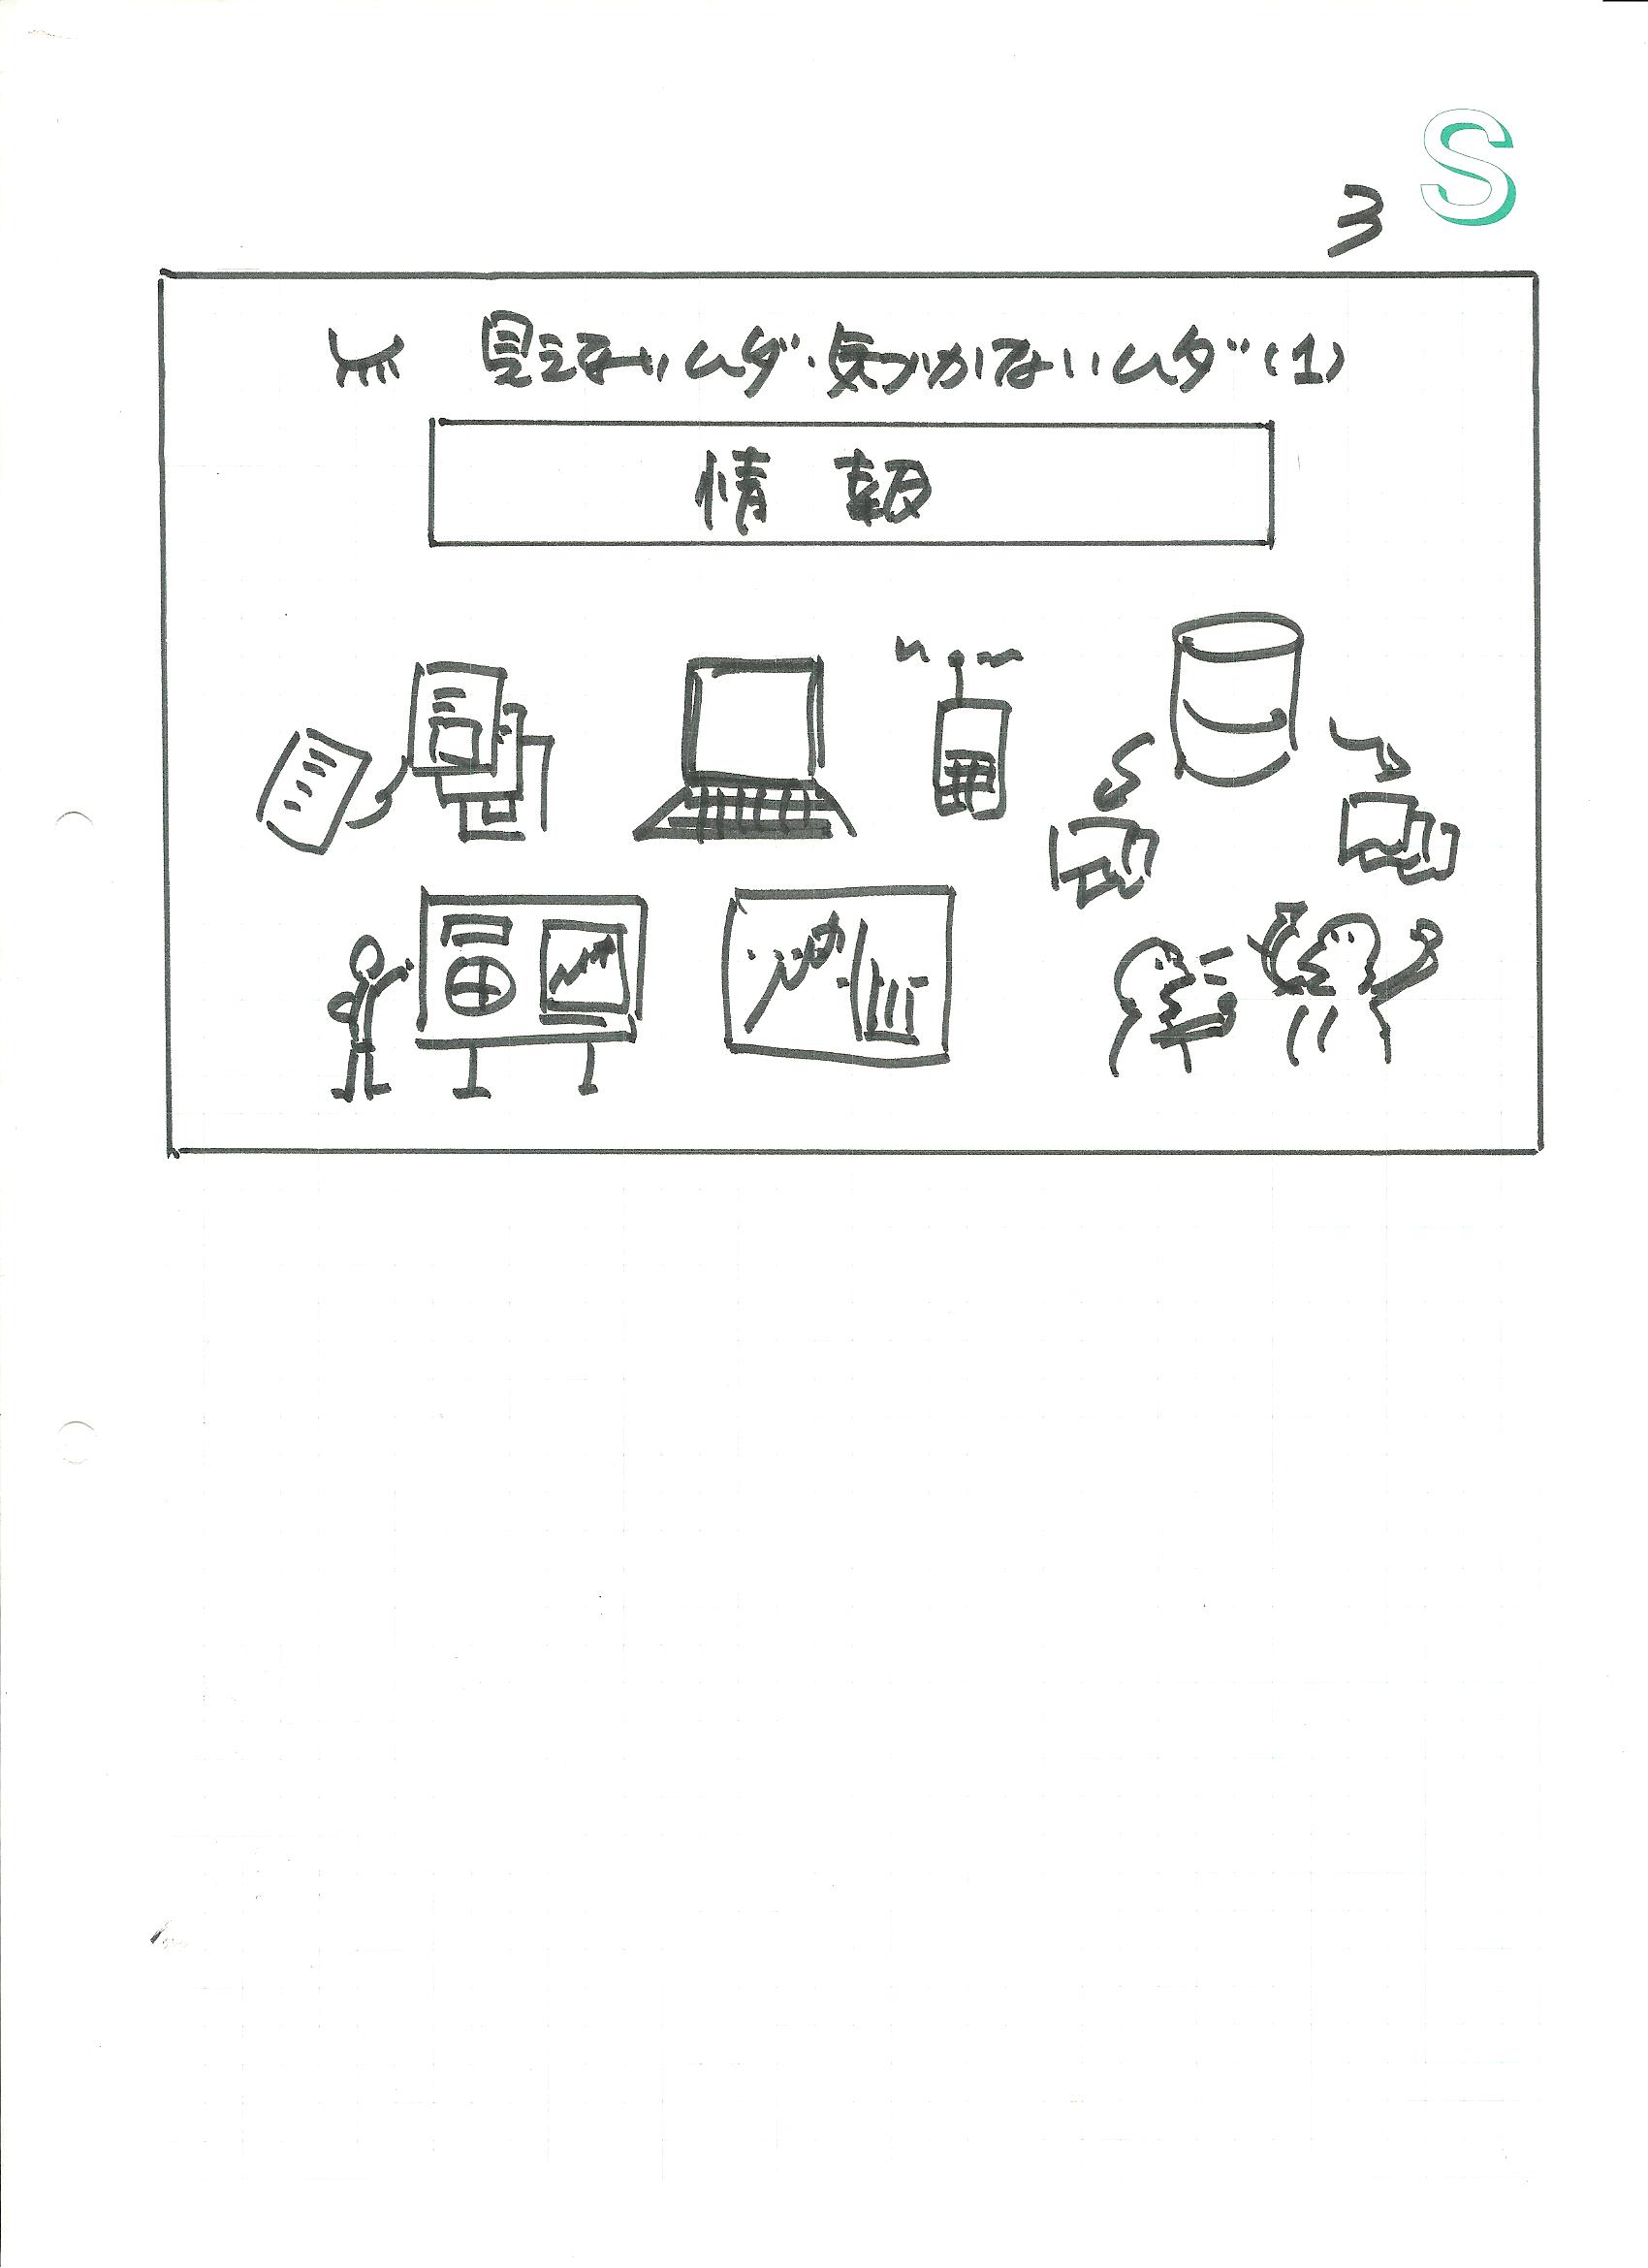 S
3
見えないムダ・気づかないムダ(1)
情報